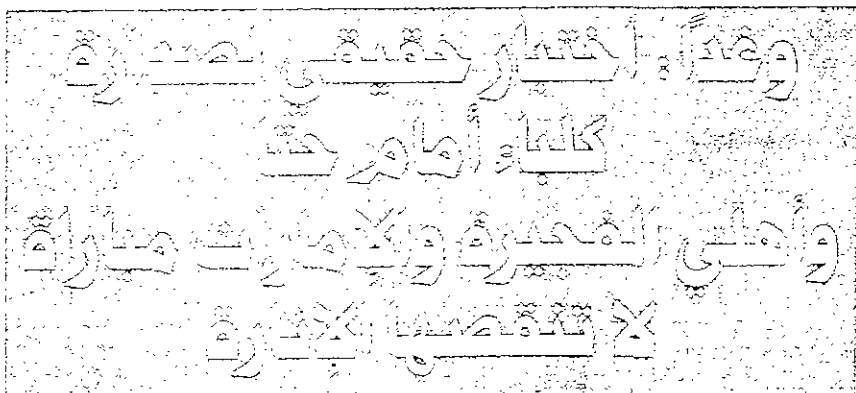 وغداً: اختبار حقيقي لصدارة
كلباء أمام حتا
وأهلي الفجيرة والإمارات مباراة
لا تنقصها الإثارة